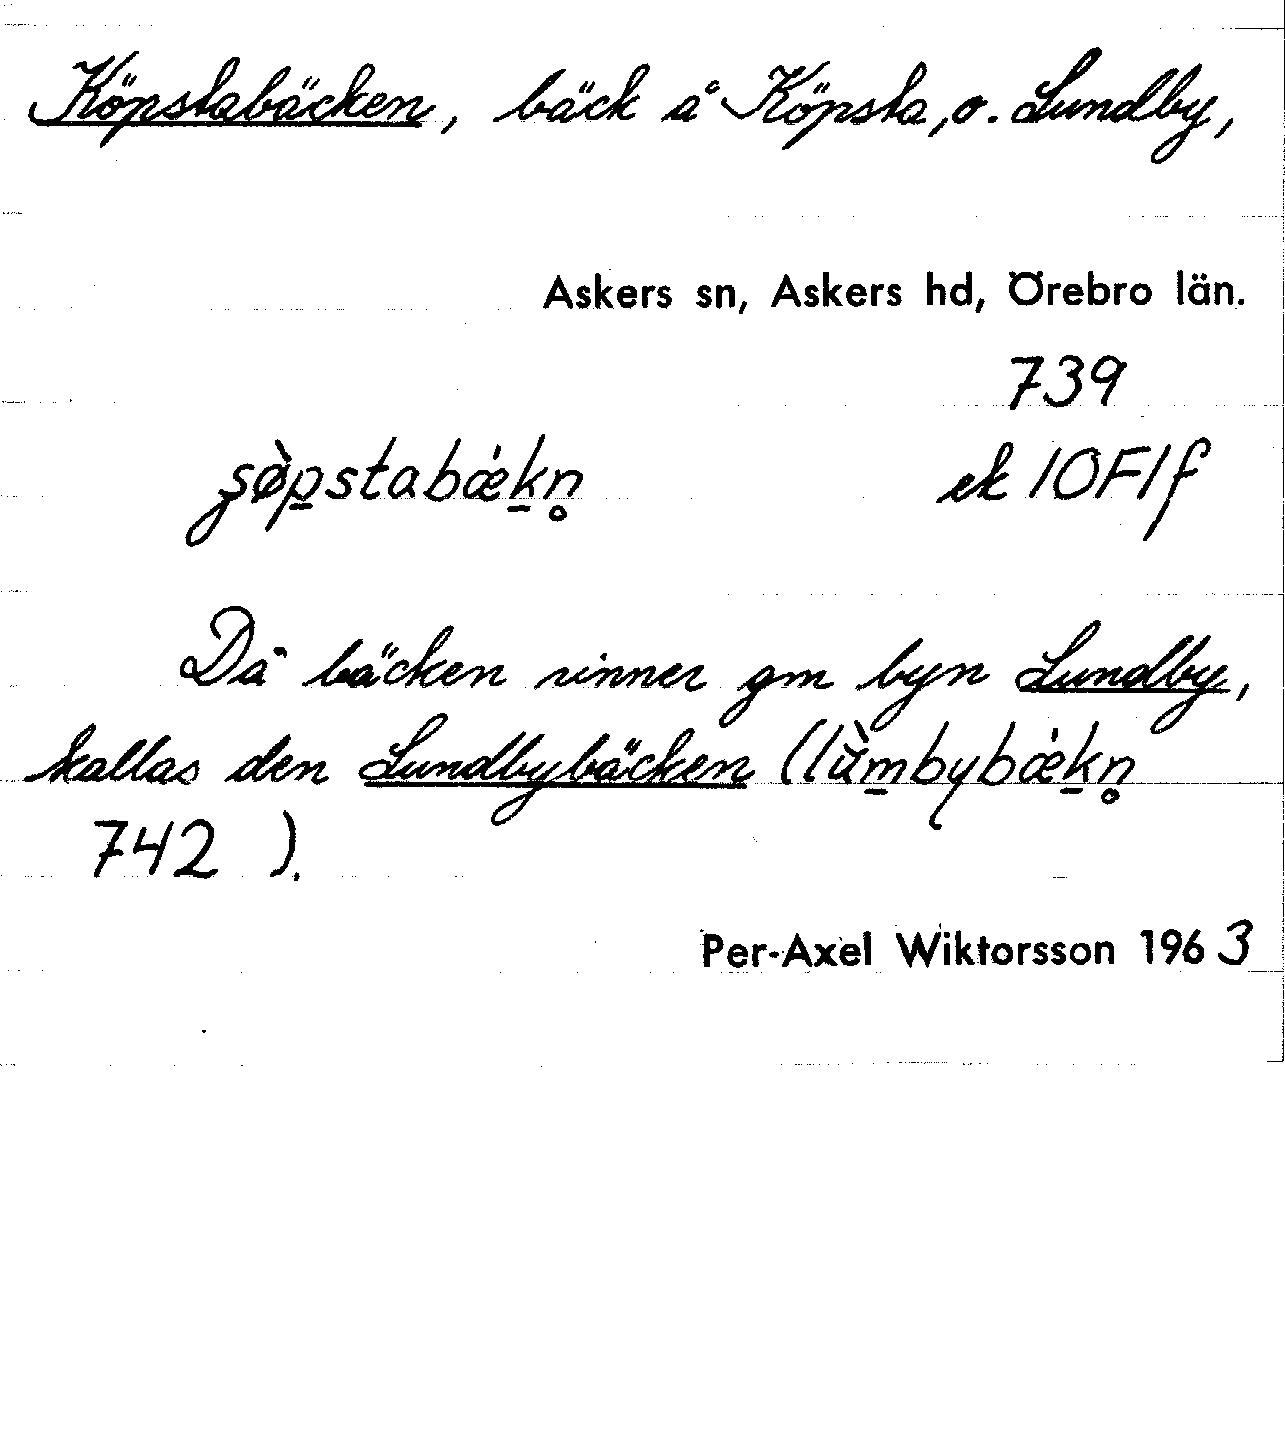 Köpstabäcken, bäck å Köpsta, o. Lundby,
Askers sn, Askers hd, Örebro län.
739
ʂø̀p̠stabǽk̠n̥ ek 10F1f
Då bäcken rinner gm byn Lundby,
kallas den Lundbybäcken (lùm̠bybǽk̠n̥
742 ).
Per-Axel Wiktorsson 1963